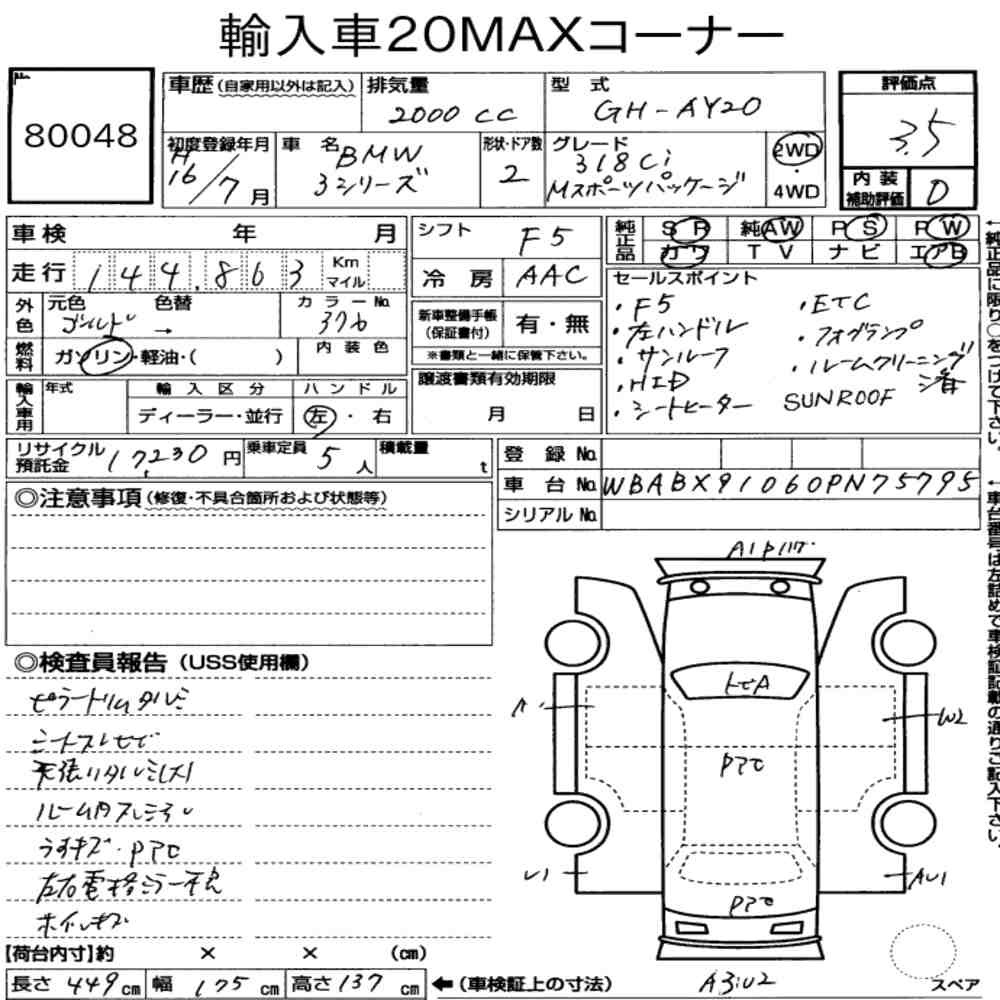 輸入車20MAXコーナー
No.
80048
車歴(自家用以外は記入)
排気量
2000 CC
型式
GH-AY20
評価点
3.5
初度登録年月
H16/7月
車名
BMW
3シリーズ
形状・ドア数
2
グレード
318Ci
Mスポーツパッケージ
2WD
4WD
内装
補助評価
D
車検 年 月
走行 144,863 Km マイル
シフト F5
冷房 AAC
純正品
SR 純AW PS PW
カワ TV ナビ エアB
←純正品に限り○をつけて下さい。
外色
元色 ゴールド → 色替
カラーNo. 376
燃料 ガソリン・軽油・( )
内装色
新車整備手帳
(保証書付)
有・無
※書類と一緒に保管下さい。
セールスポイント
・F5
・左ハンドル
・サンルーフ
・HID
・シートヒーター
・ETC
・フォグランプ
・ルームクリーニング済
SUNROOF
輸入車用
年式
輸入区分
ディーラー・並行
ハンドル
左・右
譲渡書類有効期限
月 日
リサイクル
預託金
17,230円
乗車定員 5人
積載量 t
登録No.
車台No. WBABX91060PN75795
シリアルNo.
←車台番号は左詰めで車検証記載の通りご記入下さい。
◎注意事項(修復・不具合箇所および状態等)
◎検査員報告(USS使用欄)
ピラートリムタルミ
シートスレ
天張りタルミ(大)
ルーム内スレ
うすキズ・
左右電格ミラー不良
ホイルキズ
トビA
W2
AU1
U1
A3U2
スペア
【荷台内寸】約 × × (cm)
長さ 449cm 幅 175cm 高さ 137cm
←(車検証上の寸法)